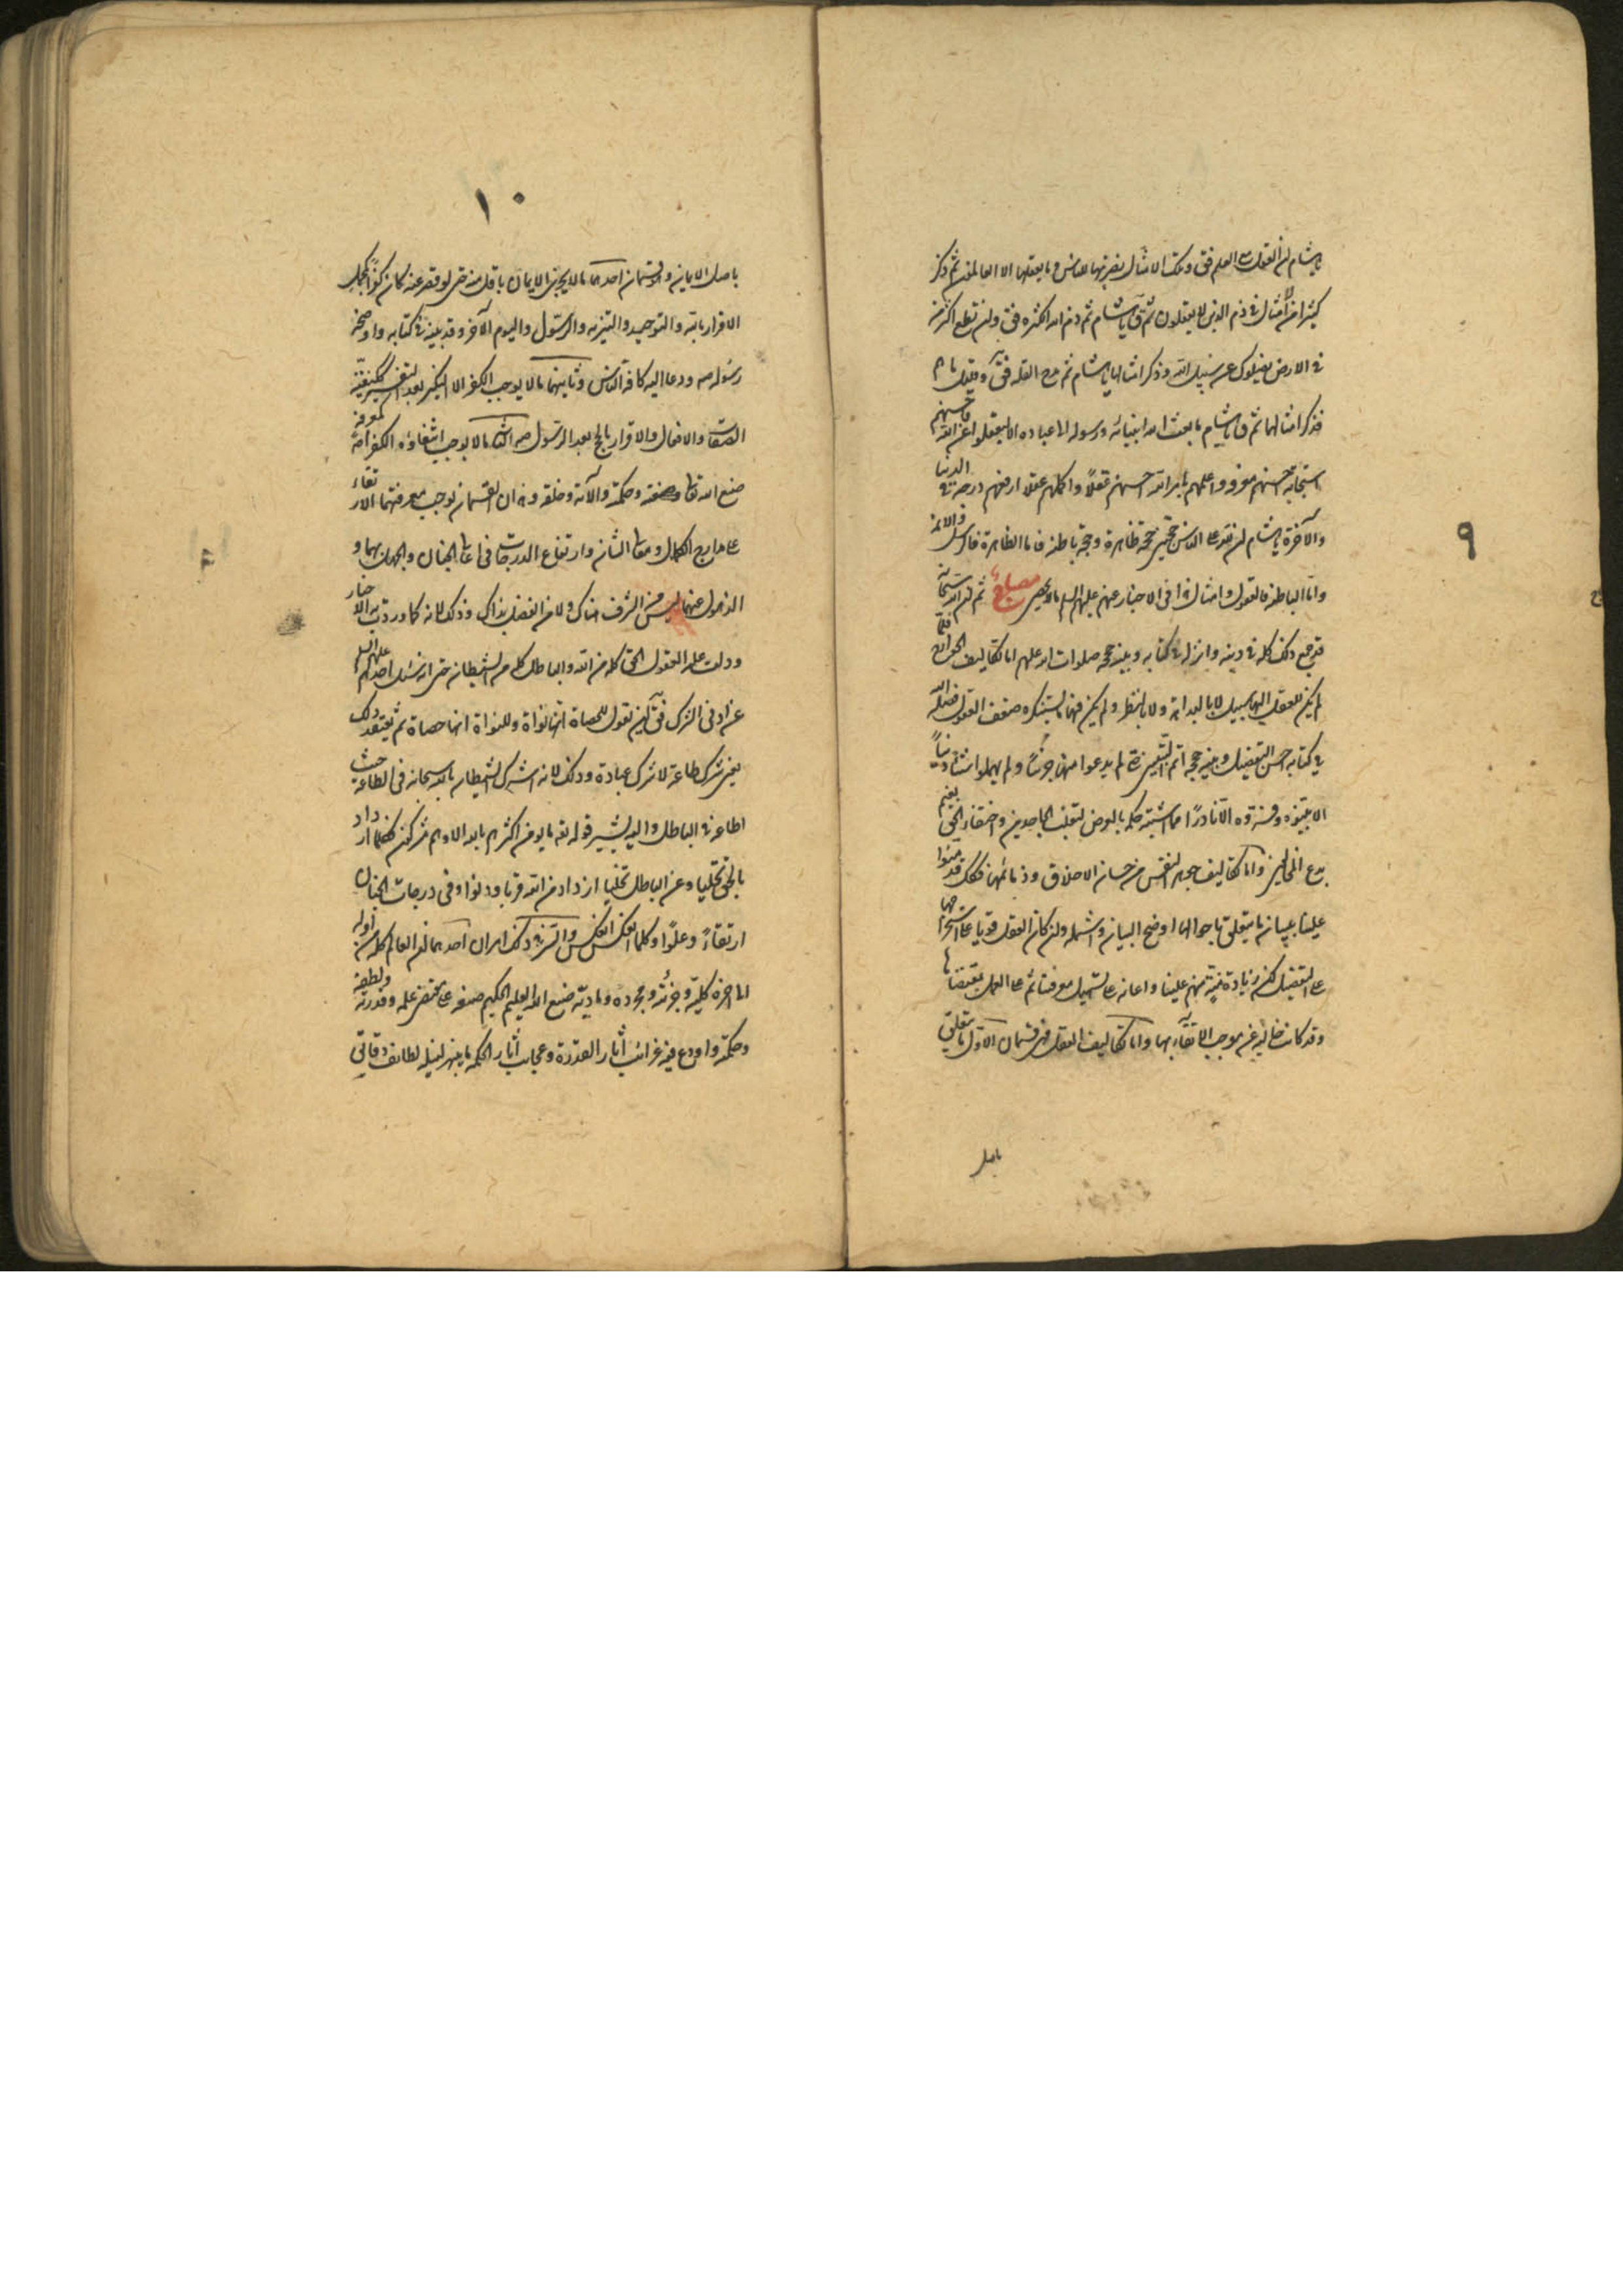 ٩
يا هشام ان العقل مع العلم فقال وتلك الامثال نضربها للناس وما يعقلها الا العالمون ثم ذكر
كثيرا من امثال في ذم الذين لا يعقلون ثم قال يا هشام ثم ذم الله الكثرة فقال وان تطع اكثر من
في الارض يضلوك عن سبيل الله وذكر امثالها يا هشام ثم مدح القلة فقال وقليل ما هم
فذكر امثالها ثم قال يا هشام ما بعث الله انبيائه ورسوله الا عباده الا ليعقلوا عن الله فاحسنهم
استجابة احسنهم معرفة واعلمهم بامر الله احسنهم عقلاً واكملهم عقلا ارفعهم درجة في الدنيا
والآخرة يا هشام ان لله على الناس حجتين حجة ظاهرة وحجة باطنة فاما الظاهرة فالرسل والائمة
واما الباطنة فالعقول وامثال هذا في الاخبار عنهم عليهم السلم ما لا يحصى مصباح ثم ان الله سبحانه
قد جمع ذلك كله في دينه وانزله في كتابه وبينه حججه صلوات الله عليهم اما تكاليف الجوارح فلما
لم يكن للعقل اليها سبيل لا بالبداهة ولا بالنظر ولم يكن فيها ما يستنكره ضعف العقول فصله الله
في كتابه احسن التفصيل وبينه حججه اتم التبيين حتى لم يدعوا منها جرشا ولم يهملوا شتاتا دنيا
الا بينوه وفسروه الا نادرا مما اشتبه حكمه بالعرض لتغلب الجاحدين واختفاء الحق بغيم
بدع المخالفين واما تكاليف جوهر النفس من حسان الاخلاق وذمائمها فكذلك قد منوا
علينا ببيان ما يتعلق باحوالها اوضح البيان واشمله وان كان العقل قويا على استخراجها
على التفصيل لكنه زيادة منة منهم علينا واعانة على تسهيل معرفتنا ثم على العمل بمقتضاها
وقد كانت خالية عن موجب الاتقاء بها واما تكاليف العقل فهي قسمان الاول ما يتعلق
باصل
١٠
باصل الايمان وهو قسمان احدهما ما لا يجزي الايمان باقل منه حتى لو قصر عنه كان كفرا كجهل
الاقرار بالله والتوحيد والتنزيه والرسول واليوم الآخر وقد بينه في كتابه واوضحه
رسوله صه ودعا اليه كافة الناس وثانيهما ما لا يوجب الكفر الا النكير بعد التفسير ككيفية
الصفات والافعال والاقرار بالحج بعد الرسول صه الثاني ما لا يوجب انتفاؤه الكفر اصلا كمعرفة
صنع الله تعالى وصفته وحكمته وآلائه وخلقه وهذان القسمان يوجب معرفتهما الارتقاء
على مدارج الكمال ومعالى الشان وارتفاع الدرجات في اعالي الجنان والجهل بهما و
الذهول عنهما ليس من الشرف هناك ولا من الفضل بذاك وذلك لانه كما وردت به الاخبار
ودلت عليه العقول الحق كله من الله والباطل كله من الشيطان حتى انه سئل احدهم عليهم السلم
عن ادنى الشرك فقال ان تقول للحصاة انها نواة وللنواة انها حصاة ثم تعتقد ذلك
يعني شرك طاعة لا شرك عبادة وذلك لانه اشرك الشيطان بالله سبحانه في الطاعة حيث
اطاعه في الباطل واليه يشير قوله تعه ما يؤمن اكثرهم بالله الا وهم مشركون فكلما ازداد
بالحق تحليا وعن الباطل تخليا ازداد من الله قربا ودنوا وفي درجات الجنان
ارتقاءً وعلوا وكلما انعكس انعكس والسر في ذلك امران احدهما ان العالم كله من اوله
الى آخره كلية وجزئه ومجرده وماديه صنع الله العليم الحكيم صنعه على مقتضى علمه وقدرته ولطفه
وحكمته واودع فيه غرائب آثار القدرة وعجايب آثار الحكمة ما يبهر لنيله لطائف دقائق